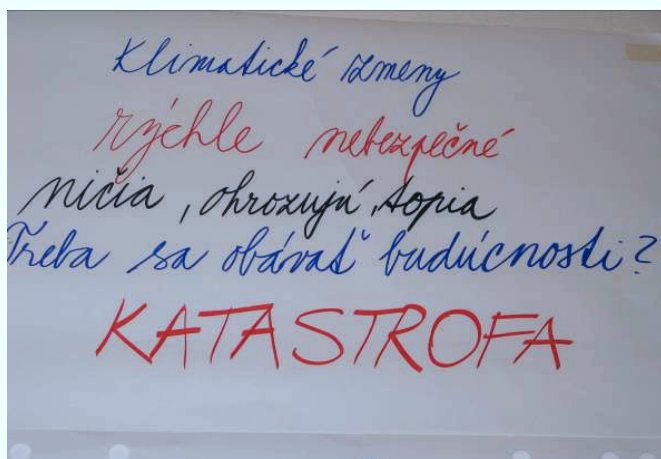 Klimatické zmeny
rýchle nebezpečné
ničia, ohrozujú, topia
Treba sa obávať budúcnosti?
KATASTROFA